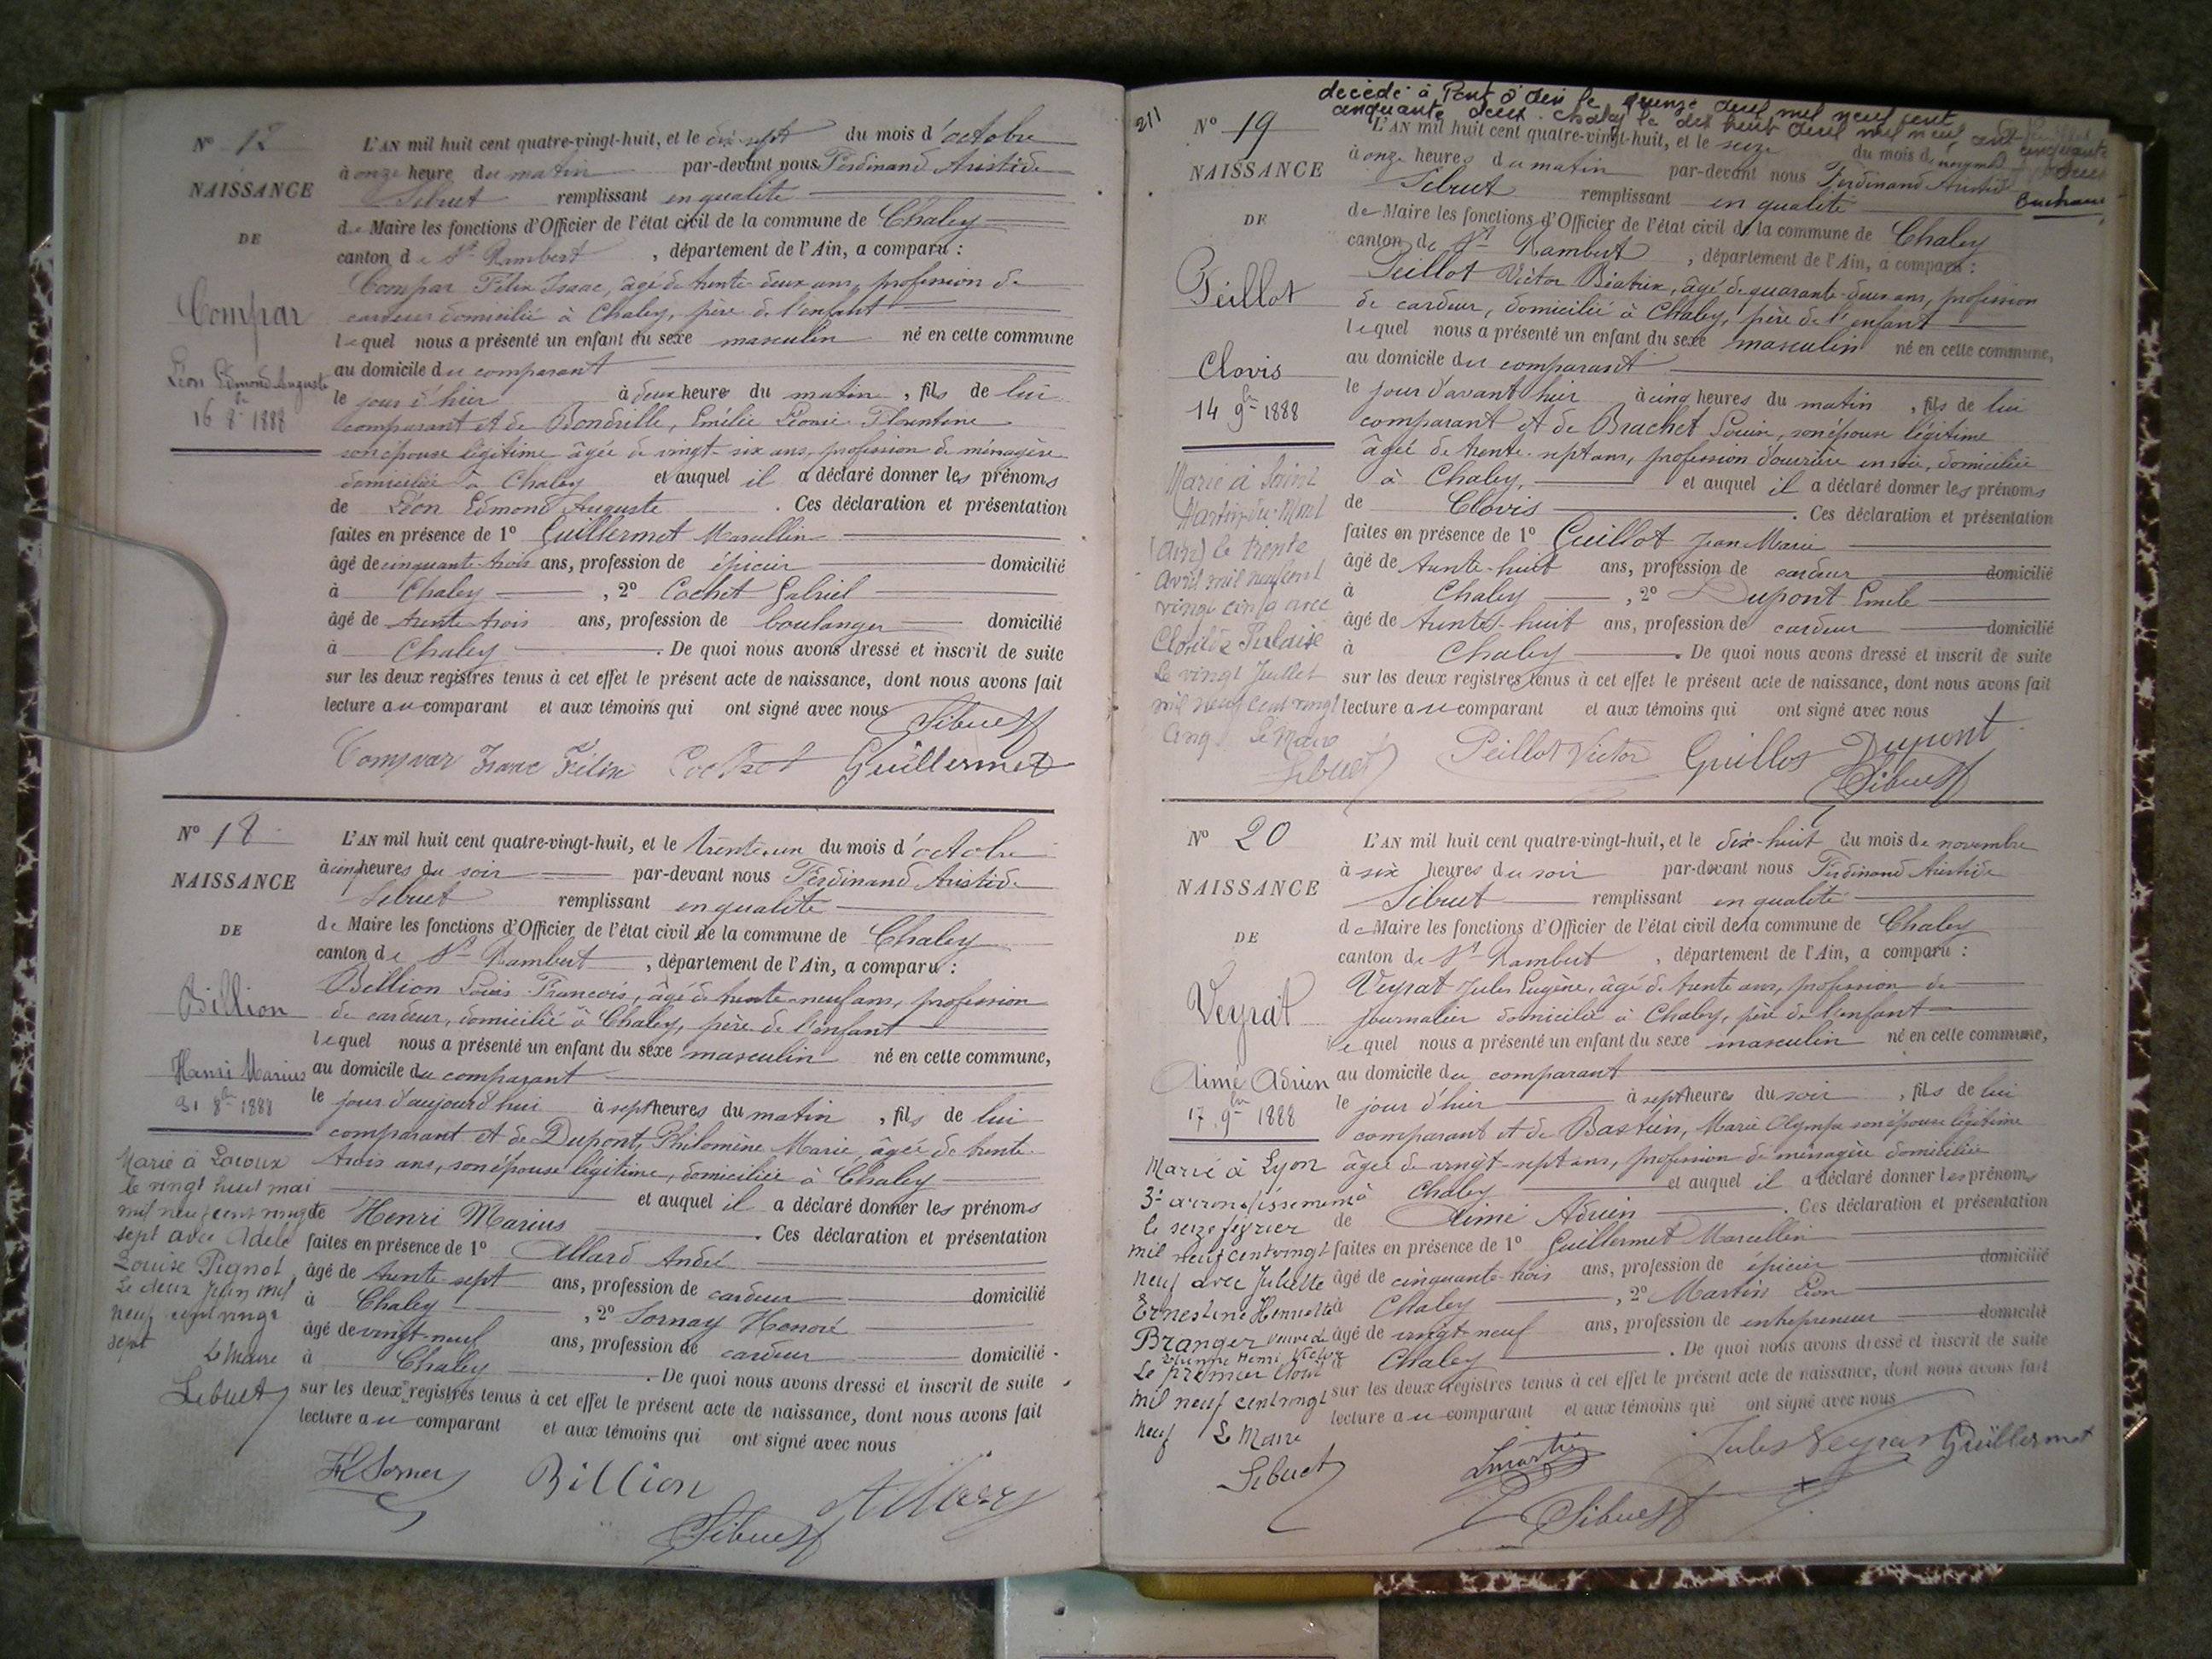 N° 17
NAISSANCE
DE
Compar
Léon Edmond Auguste
16 8bre 1888
L'AN mil huit cent quatre-vingt-huit, et le dix-sept du mois d'octobre
à onze heure du matin par-devant nous Ferdinand Aristide
Sibuet remplissant en qualité
de Maire les fonctions d'Officier de l'état civil de la commune de Chaley
canton de St Rambert, département de l'Ain, a comparu :
Compar Félix Isaac, âgé de trente deux ans, profession de
cardeur domicilié à Chaley, père de l'enfant
lequel nous a présenté un enfant du sexe masculin né en cette commune
au domicile du comparant
le jour d'hier à deux heures du matin, fils de lui
comparant et de Bondrille, Emélie Léonie Florentine
son épouse légitime âgée de vingt-six ans, profession de ménagère
domiciliée à Chaley et auquel il a déclaré donner les prénoms
de Léon Edmond Auguste. Ces déclaration et présentation
faites en présence de 1° Guillermet Marcellin
âgé de cinquante trois ans, profession de épicier domicilié
à Chaley, 2° Cochet Gabriel
âgé de trente trois ans, profession de boulanger domicilié
à Chaley. De quoi nous avons dressé et inscrit de suite
sur les deux registres tenus à cet effet le présent acte de naissance, dont nous avons fait
lecture au comparant et aux témoins qui ont signé avec nous
Sibuet
Compar Isaac Félix Cochet Guillermet
N° 18
NAISSANCE
DE
Billion
Henri Marius
31 8bre 1888
Marié à Lacoux
le vingt huit mai
mil neuf cent vingt
sept avec Adèle
Louise Pignol
Le deux Juin mil
neuf cent vingt
sept
Le Maire
Sibuet
L'AN mil huit cent quatre-vingt-huit, et le trente-un du mois d'octobre
à cinq heures du soir par-devant nous Ferdinand Aristide
Sibuet remplissant en qualité
de Maire les fonctions d'Officier de l'état civil de la commune de Chaley
canton de St Rambert, département de l'Ain, a comparu :
Billion Louis François, âgé de trente-neuf ans, profession
de cardeur, domicilié à Chaley, père de l'enfant
lequel nous a présenté un enfant du sexe masculin né en cette commune,
au domicile du comparant
le jour d'aujourd'hui à sept heures du matin, fils de lui
comparant et de Dupont, Philomène Marie, âgée de trente
trois ans, son épouse légitime, domiciliée à Chaley
et auquel il a déclaré donner les prénoms
de Henri Marius. Ces déclaration et présentation
faites en présence de 1° Allard André
âgé de trente-sept ans, profession de cardeur domicilié
à Chaley, 2° Sornay Honoré
âgé de vingt-neuf ans, profession de cardeur domicilié
à Chaley. De quoi nous avons dressé et inscrit de suite
sur les deux registres tenus à cet effet le présent acte de naissance, dont nous avons fait
lecture au comparant et aux témoins qui ont signé avec nous
Billion
Sibuet
211
décédé à Pont d'Ain le quinze avril mil neuf cent
cinquante deux. Chaley le dix huit avril mil neuf cent cinquante
deux
N° 19
NAISSANCE
DE
Peillot
Clovis
14 9bre 1888
Marié à Saint
Martin-du-Mont
(Ain) le trente
avril mil neuf cent
vingt cinq avec
Clotilde
Le vingt Juillet
mil neuf cent vingt
cinq Le Maire
Sibuet
L'AN mil huit cent quatre-vingt-huit, et le seize du mois de novembre
à onze heures du matin par-devant nous Ferdinand Aristide
Sibuet remplissant en qualité
de Maire les fonctions d'Officier de l'état civil de la commune de Chaley
canton de St Rambert, département de l'Ain, a comparu :
Peillot Victor Béatrix, âgé de quarante-deux ans, profession
de cardeur, domicilié à Chaley, père de l'enfant
lequel nous a présenté un enfant du sexe masculin né en cette commune,
au domicile du comparant
le jour d'avant hier à cinq heures du matin, fils de lui
comparant et de Brachet Louise, son épouse légitime
âgée de trente-sept ans, profession d'ouvrière en soie, domiciliée
à Chaley, et auquel il a déclaré donner les prénoms
de Clovis. Ces déclaration et présentation
faites en présence de 1° Guillot Jean Marie
âgé de trente-huit ans, profession de cardeur domicilié
à Chaley, 2° Dupont Emile
âgé de trente-huit ans, profession de cardeur domicilié
à Chaley. De quoi nous avons dressé et inscrit de suite
sur les deux registres tenus à cet effet le présent acte de naissance, dont nous avons fait
lecture au comparant et aux témoins qui ont signé avec nous
Peillot Victor Guillot Dupont
Sibuet
N° 20
NAISSANCE
DE
Veyrat
Aimé Adrien
17 9bre 1888
Marié à Lyon
3e arrondissement
le seize février
mil neuf cent vingt
neuf avec Juliette
Ernestine Henriette
Branger veuve de
Etienne Henri Victor
Le premier Août
mil neuf cent vingt
neuf Le Maire
Sibuet
L'AN mil huit cent quatre-vingt-huit, et le dix-huit du mois de novembre
à six heures du soir par-devant nous Ferdinand Aristide
Sibuet remplissant en qualité
de Maire les fonctions d'Officier de l'état civil de la commune de Chaley
canton de St Rambert, département de l'Ain, a comparu :
Veyrat Jules Eugène, âgé de trente ans, profession de
journalier domicilié à Chaley, père de l'enfant
lequel nous a présenté un enfant du sexe masculin né en cette commune,
au domicile du comparant
le jour d'hier à sept heures du soir, fils de lui
comparant et de Bastien, Marie Olympe son épouse légitime
âgée de vingt-sept ans, profession de ménagère domiciliée
à Chaley et auquel il a déclaré donner les prénoms
de Aimé Adrien. Ces déclaration et présentation
faites en présence de 1° Guillermet Marcellin
âgé de cinquante-trois ans, profession de épicier domicilié
à Chaley, 2° Martin Léon
âgé de vingt-neuf ans, profession de entrepreneur domicilié
à Chaley. De quoi nous avons dressé et inscrit de suite
sur les deux registres tenus à cet effet le présent acte de naissance, dont nous avons fait
lecture au comparant et aux témoins qui ont signé avec nous
Jules Veyrat Guillermet
Sibuet